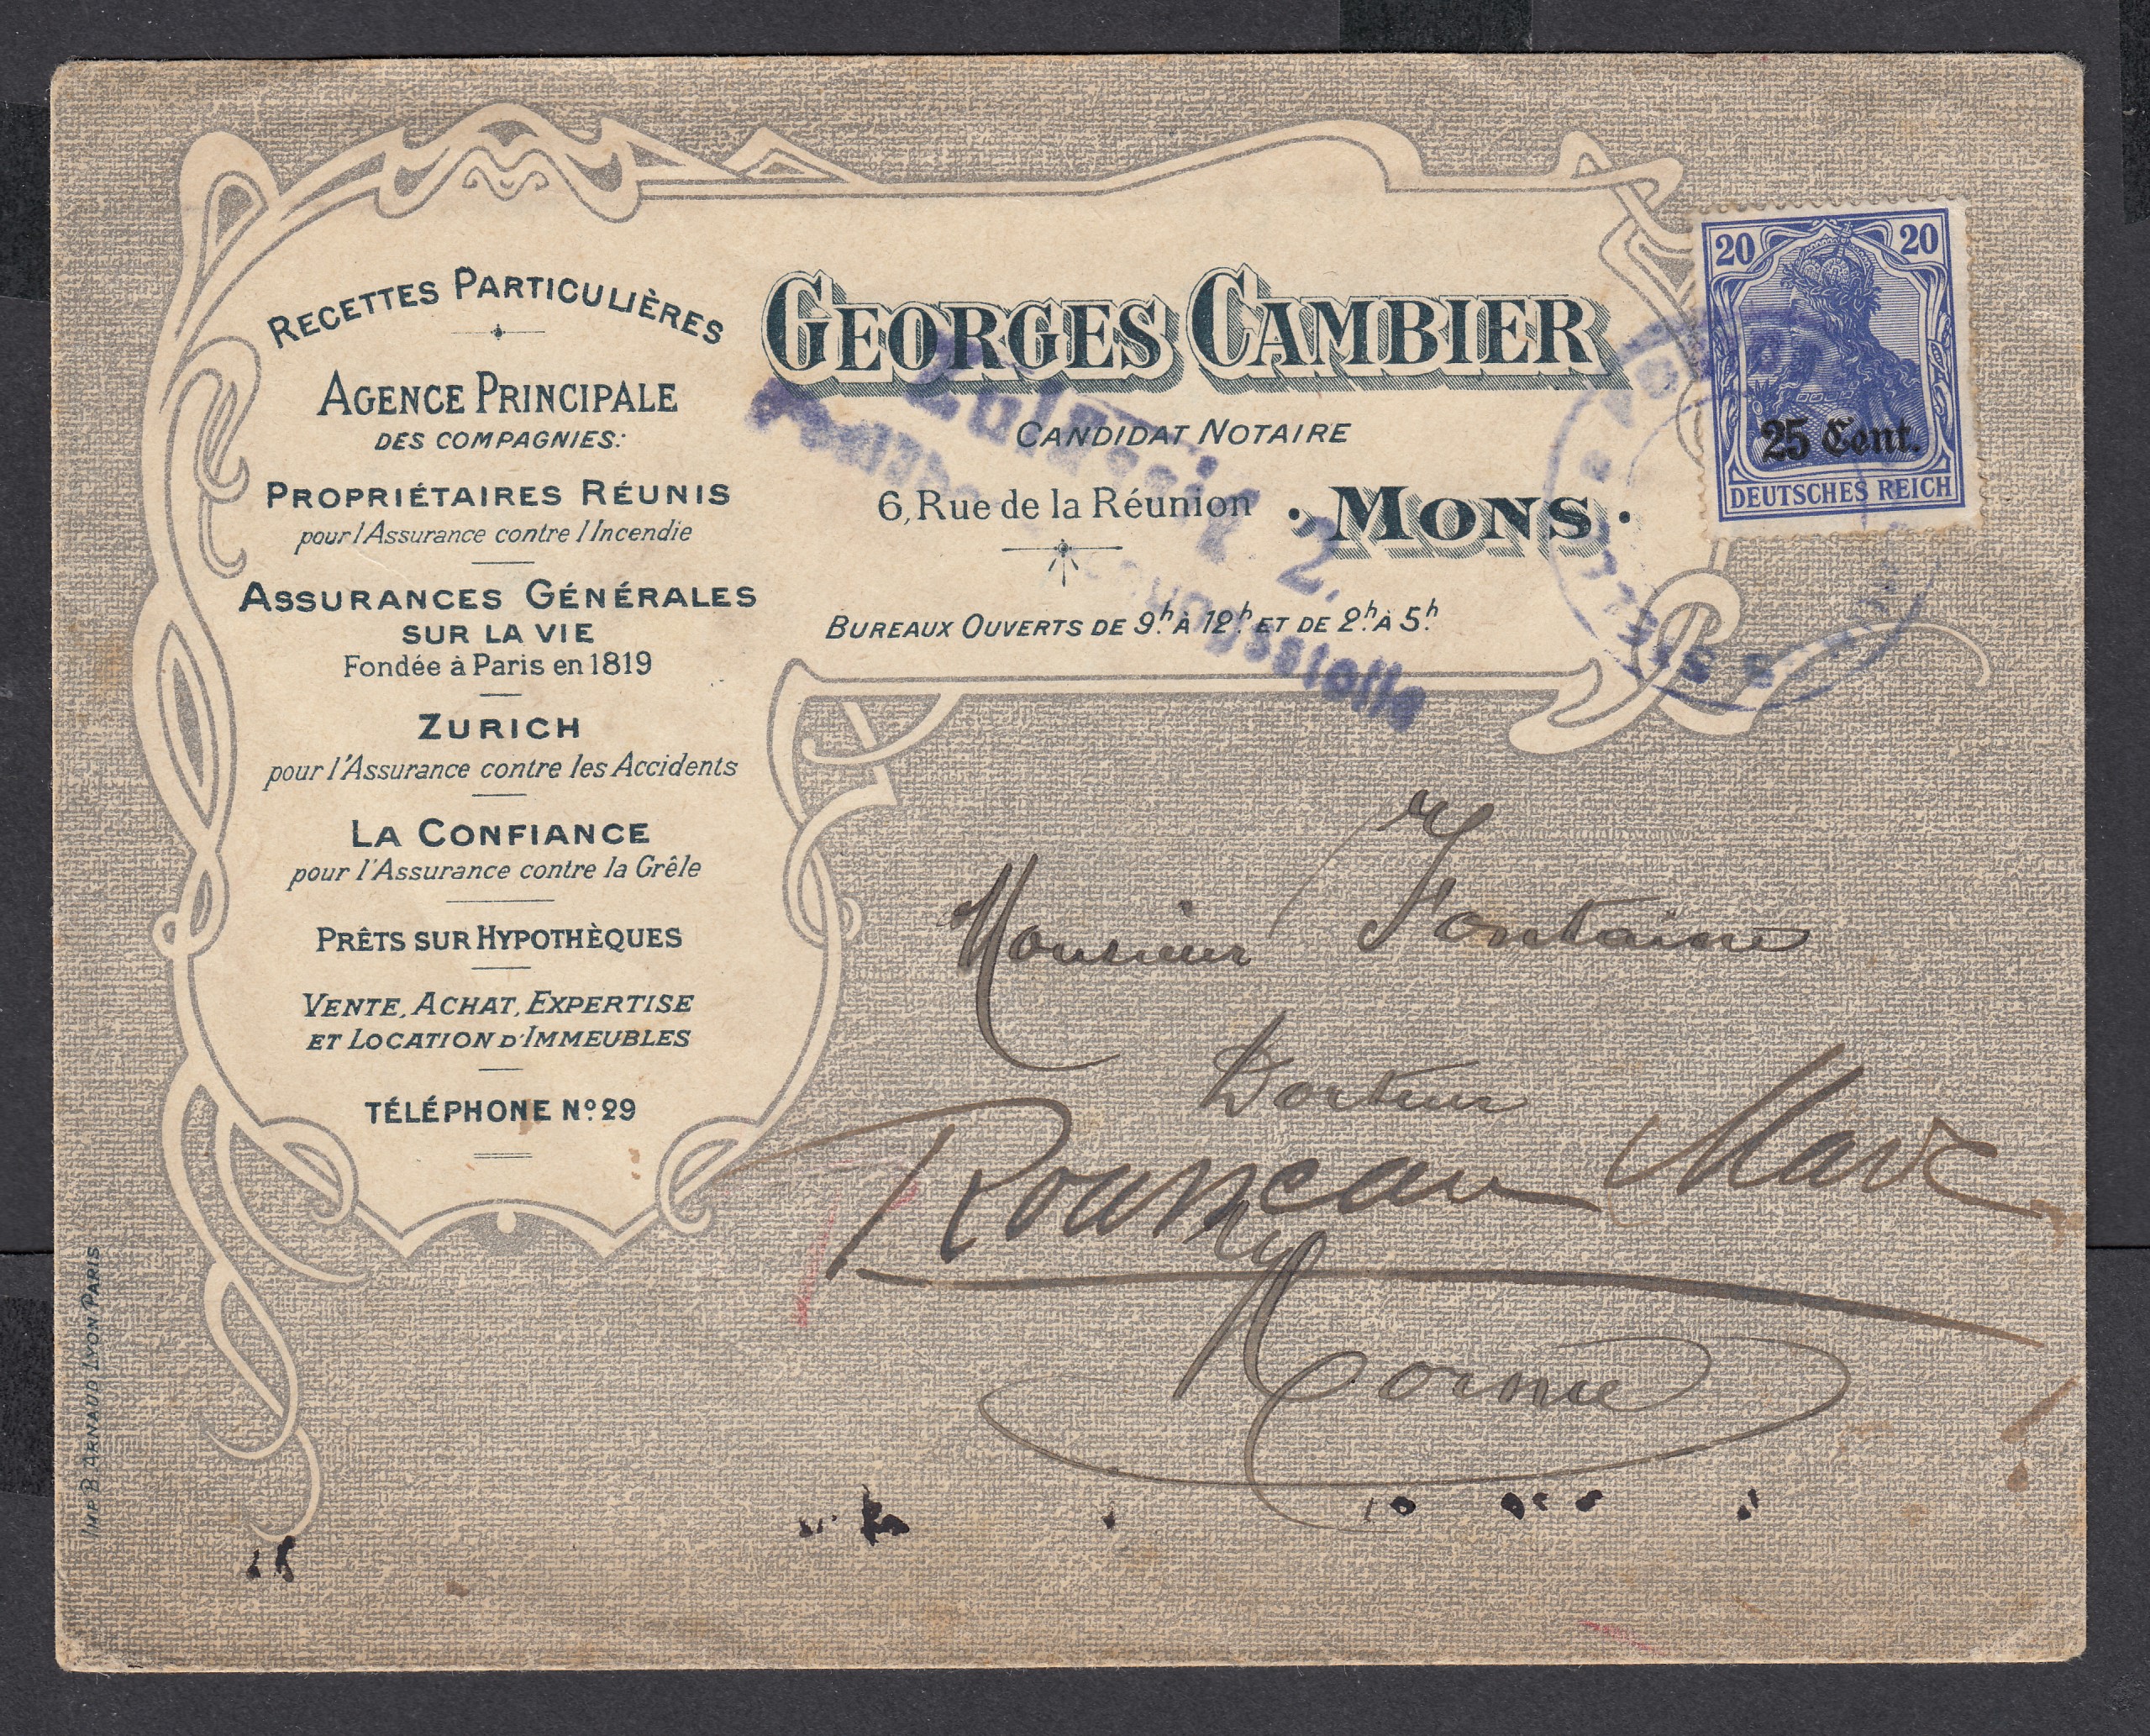 RECETTES PARTICULIÈRES
AGENCE PRINCIPALE
DES COMPAGNIES:
PROPRIÉTAIRES RÉUNIS
pour l'Assurance contre l'Incendie
ASSURANCES GÉNÉRALES
SUR LA VIE
Fondée à Paris en 1819
ZURICH
pour l'Assurance contre les Accidents
LA CONFIANCE
pour l'Assurance contre la Grêle
PRÊTS SUR HYPOTHÈQUES
VENTE, ACHAT, EXPERTISE
ET LOCATION D'IMMEUBLES
TÉLÉPHONE Nº 29
GEORGES CAMBIER
CANDIDAT NOTAIRE
6, Rue de la Réunion · MONS ·
BUREAUX OUVERTS DE 9h. À 12h. ET DE 2h. À 5h.
20 20
25 Cent.
DEUTSCHES REICH
Monsieur Fontaine
Docteur
IMP. B. ARNAUD LYON PARIS